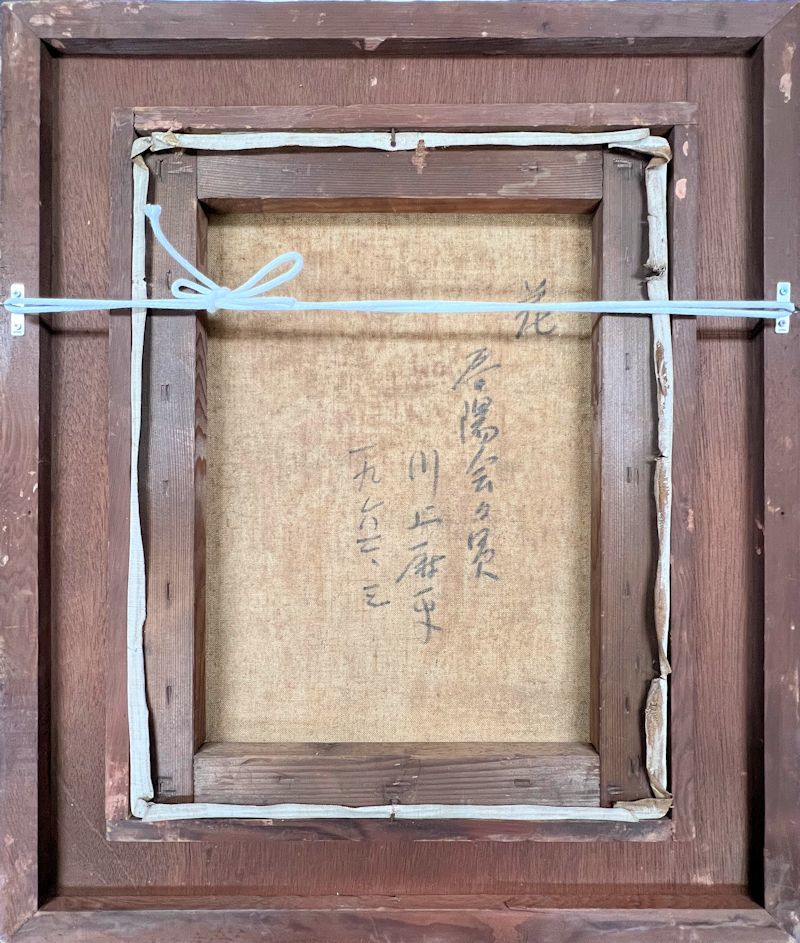 花
春陽会々員
川上平
一九六、三